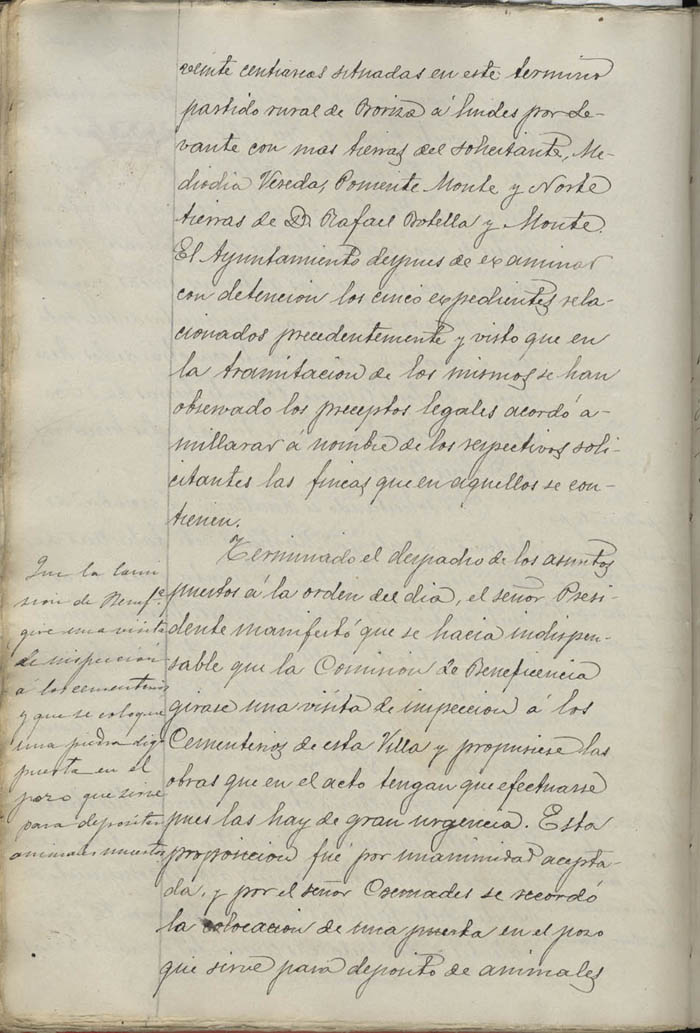 veinte centiareas situadas en este termino
partido rural de Boriza á lindes por Le-
vante con mas tierras del solicitante, Me-
diodia Vereda, Poniente Monte y Norte
tierras de Dn Rafael Botella y Monte.
El Ayuntamiento despues de examinar
con detencion los cinco expedientes rela-
cionados precedentemente y visto que en
la tramitacion de los mismos se han
observado los preceptos legales acordó a-
millarar á nombre de los respectivos soli-
citantes las fincas que en aquellos se con-
tienen.
Terminado el despacho de los asuntos
puestos á la orden del dia, el señor Presi-
dente manifestó que se hacia indispen-
sable que la Comision de Beneficencia
girase una visita de inspeccion á los
Cementerios de esta Villa y propusiese las
obras que en el acto tengan que efectuarse
pues las hay de gran urgencia. Esta
proposicion fué por unanimidad acepta-
da, y por el señor Cremades se recordó
la colocacion de una puerta en el pozo
que sirve para deposito de animales
Que la Comi
sion de Benefa.
gire una visita
de inspeccion
á los cementerios
y que se coloque
una
puerta en el
pozo que sirve
para depositar
animales muertos